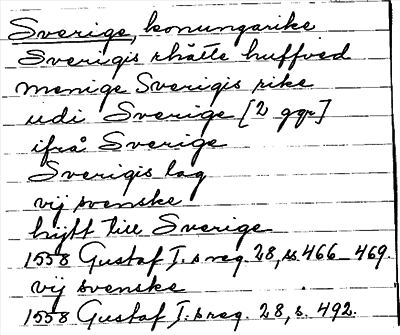 Sverige, konungarike
Sverigis rhätte huffved
menige Sverigis rike
udi Sverige [2 ggr]
ifrå Sverige
Sverigis lag
vij svenske
hijtt till Sverige
1558 Gustaf I:s reg. 28, ss. 466-469.
vij svenske
1558 Gustaf I:s reg. 28, s. 492.